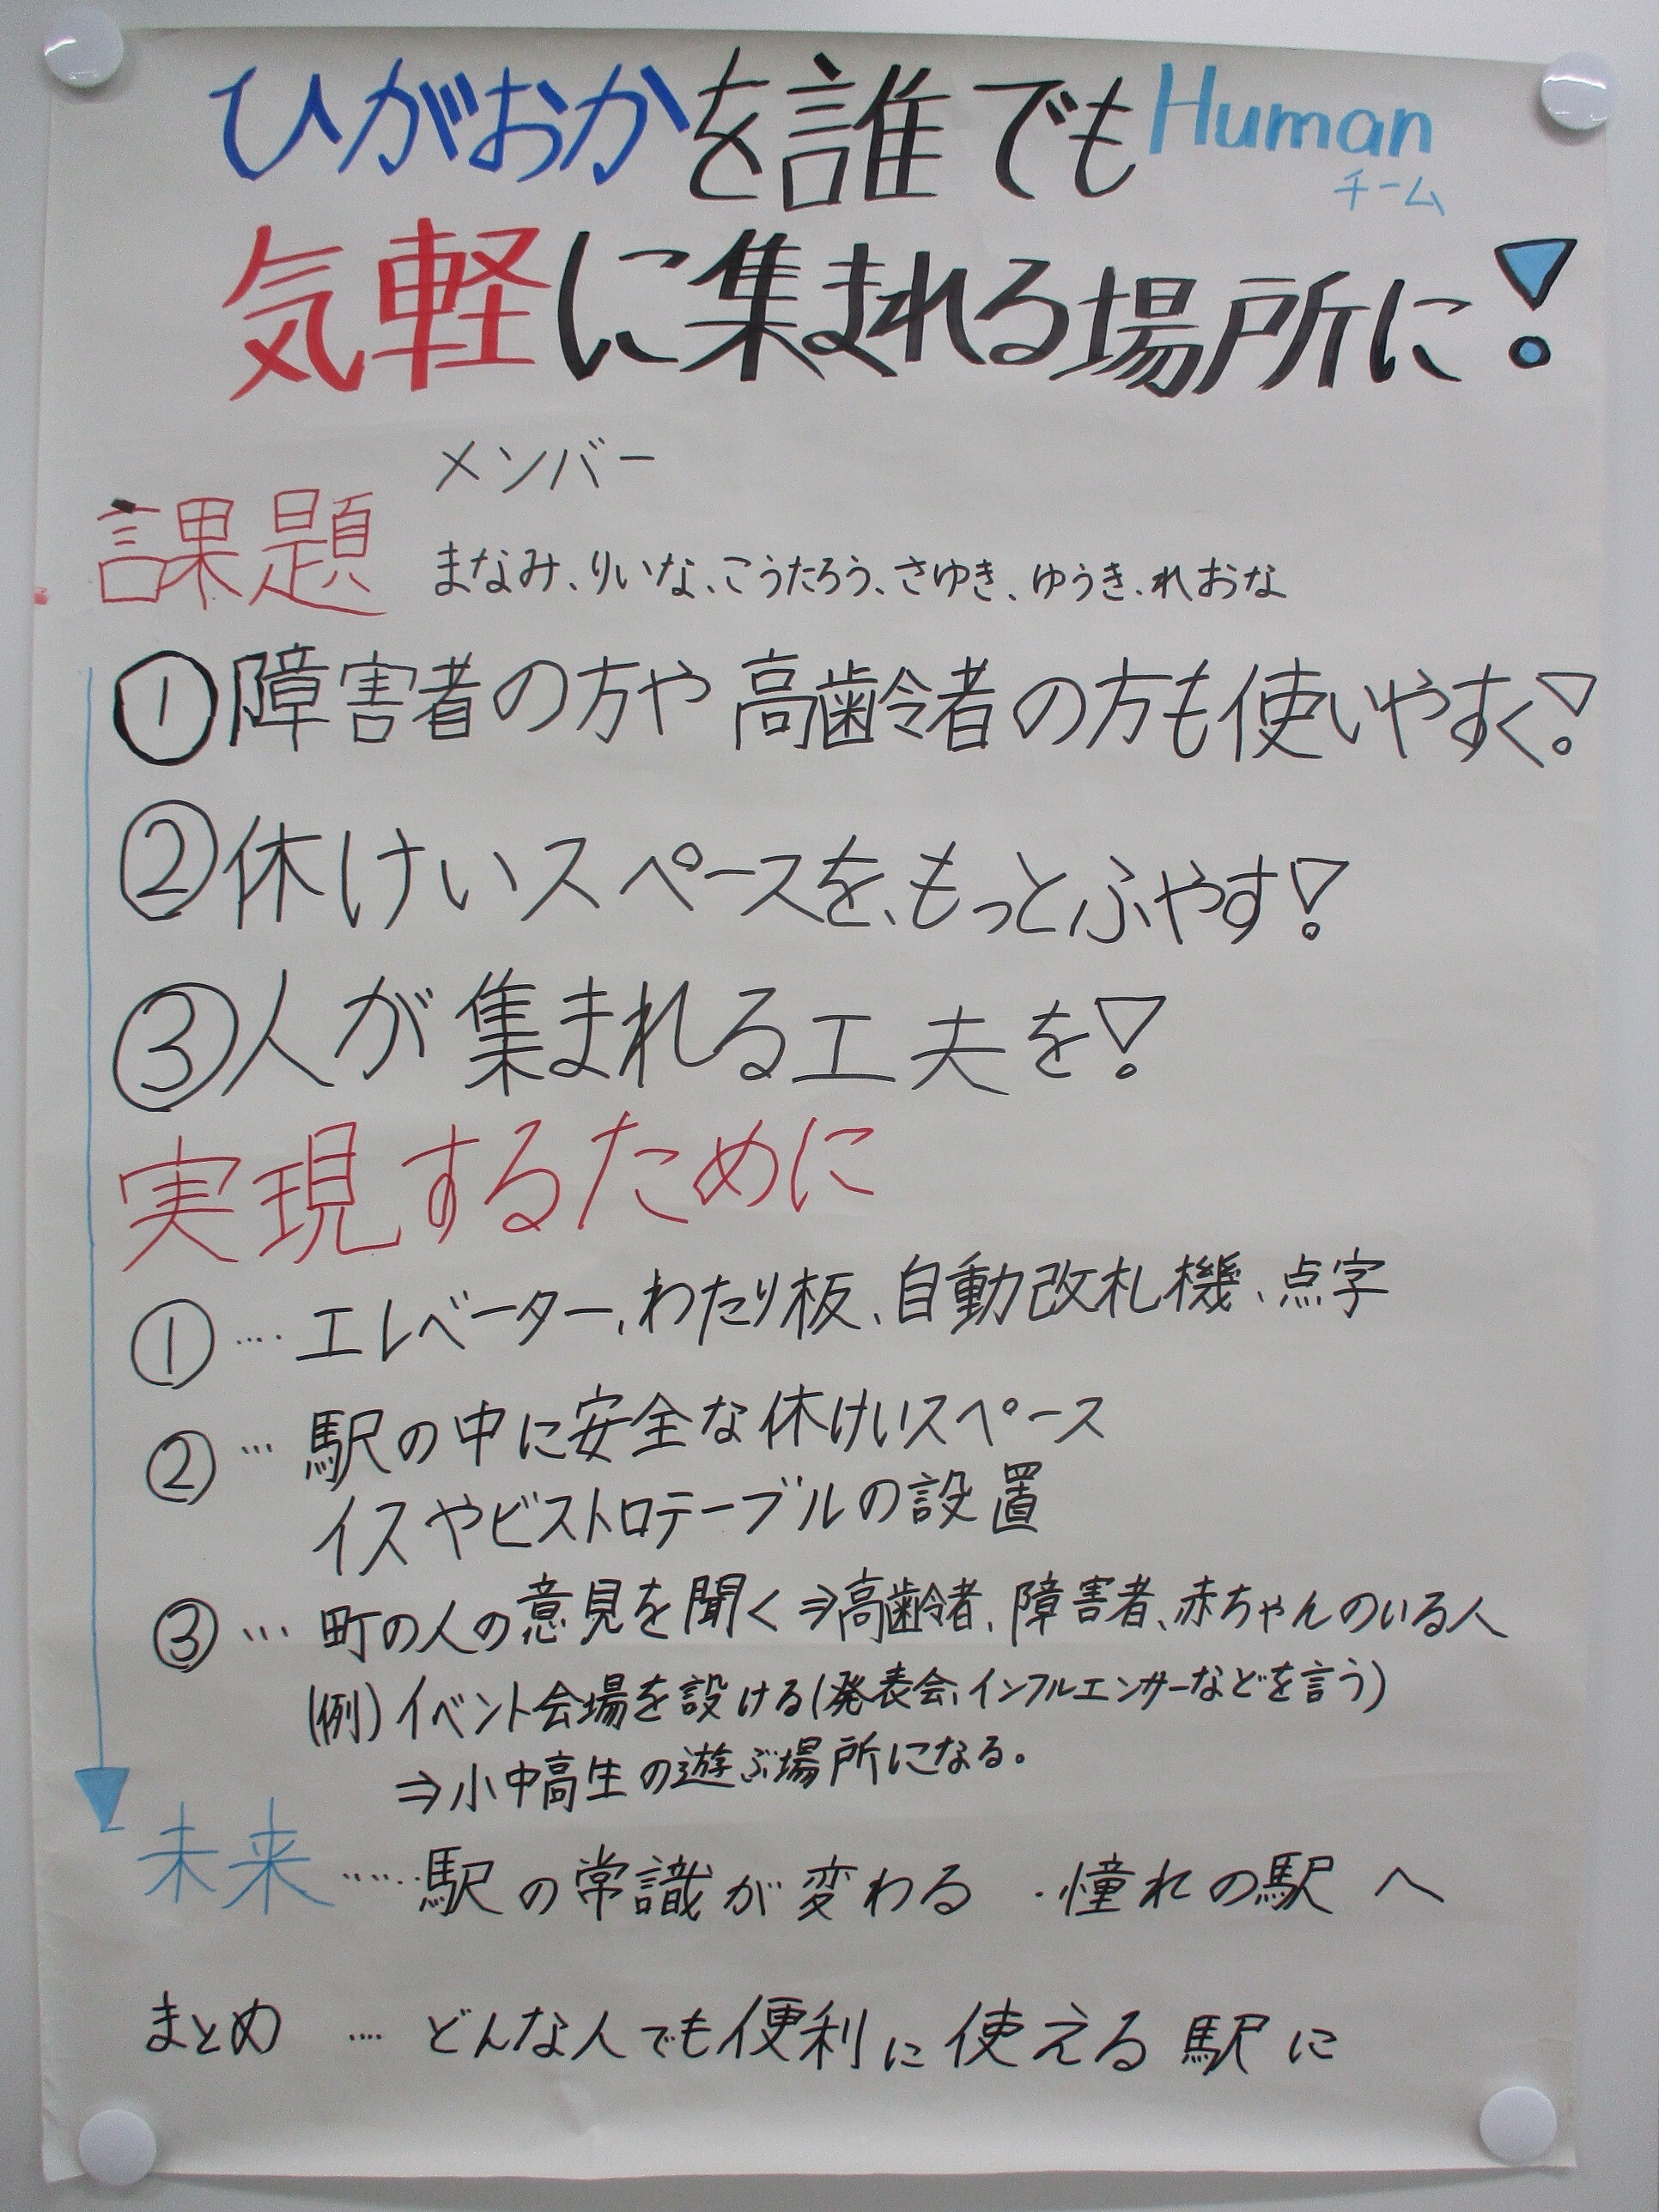 ひがおかを誰でも Human
チーム
気軽に集まれる場所に!
メンバー
課題
まなみ、りいな、こうたろう、さゆき、ゆうき、れおな
①障害者の方や高齢者の方も使いやすく!
②休けいスペースを、もっとふやす!
③人が集まれる工夫を!
実現するために
①‥‥エレベーター、わたり板、自動改札機、点字
②…駅の中に安全な休けいスペース
イスやビストロテーブルの設置
③…町の人の意見を聞く⇒高齢者、障害者、赤ちゃんのいる人
(例)イベント会場を設ける(発表会、インフルエンサーなどを言う)
⇒小中高生の遊ぶ場所になる。
未来‥‥‥駅の常識が変わる ・憧れの駅へ
まとめ ‥‥どんな人でも便利に使える駅に